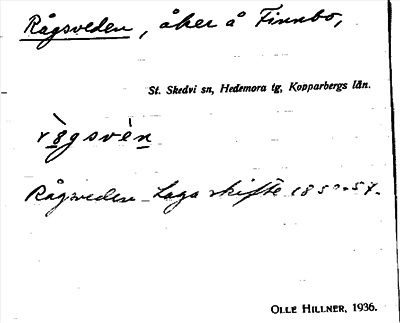 Rågsveden, åker å Finnbo,
St. Skedvi sn, Hedemora tg, Kopparbergs län.
r8̀gsvèn
Rågsveden Laga skifte 1850-57.
OLLE HILLNER, 1936.